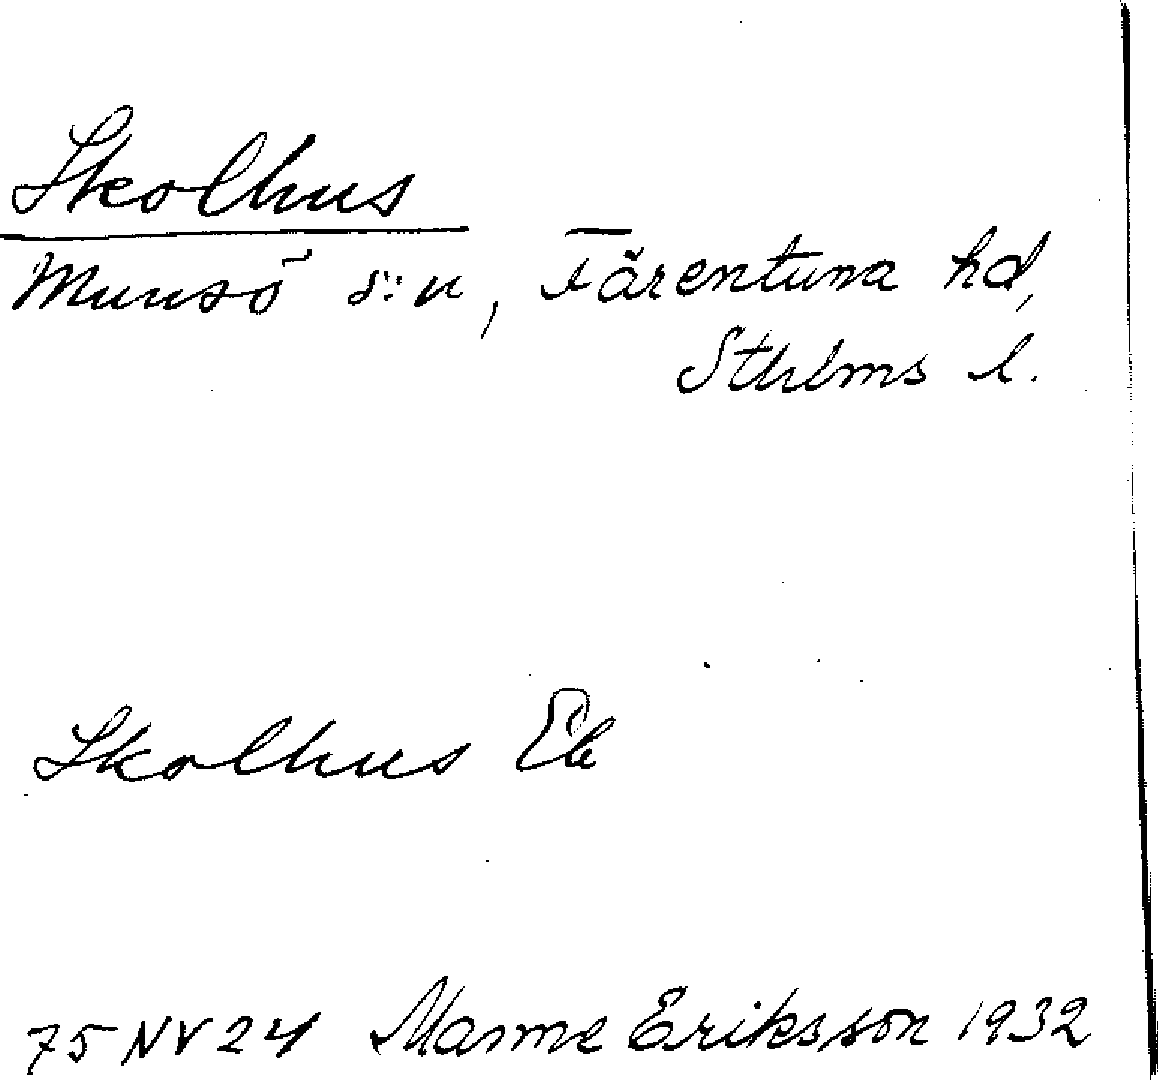 Skolhus
Munsö s:n, Färentuna hd,
Sthlms l.
Skolhus Ek
75 NV 24 Manne Eriksson 1932